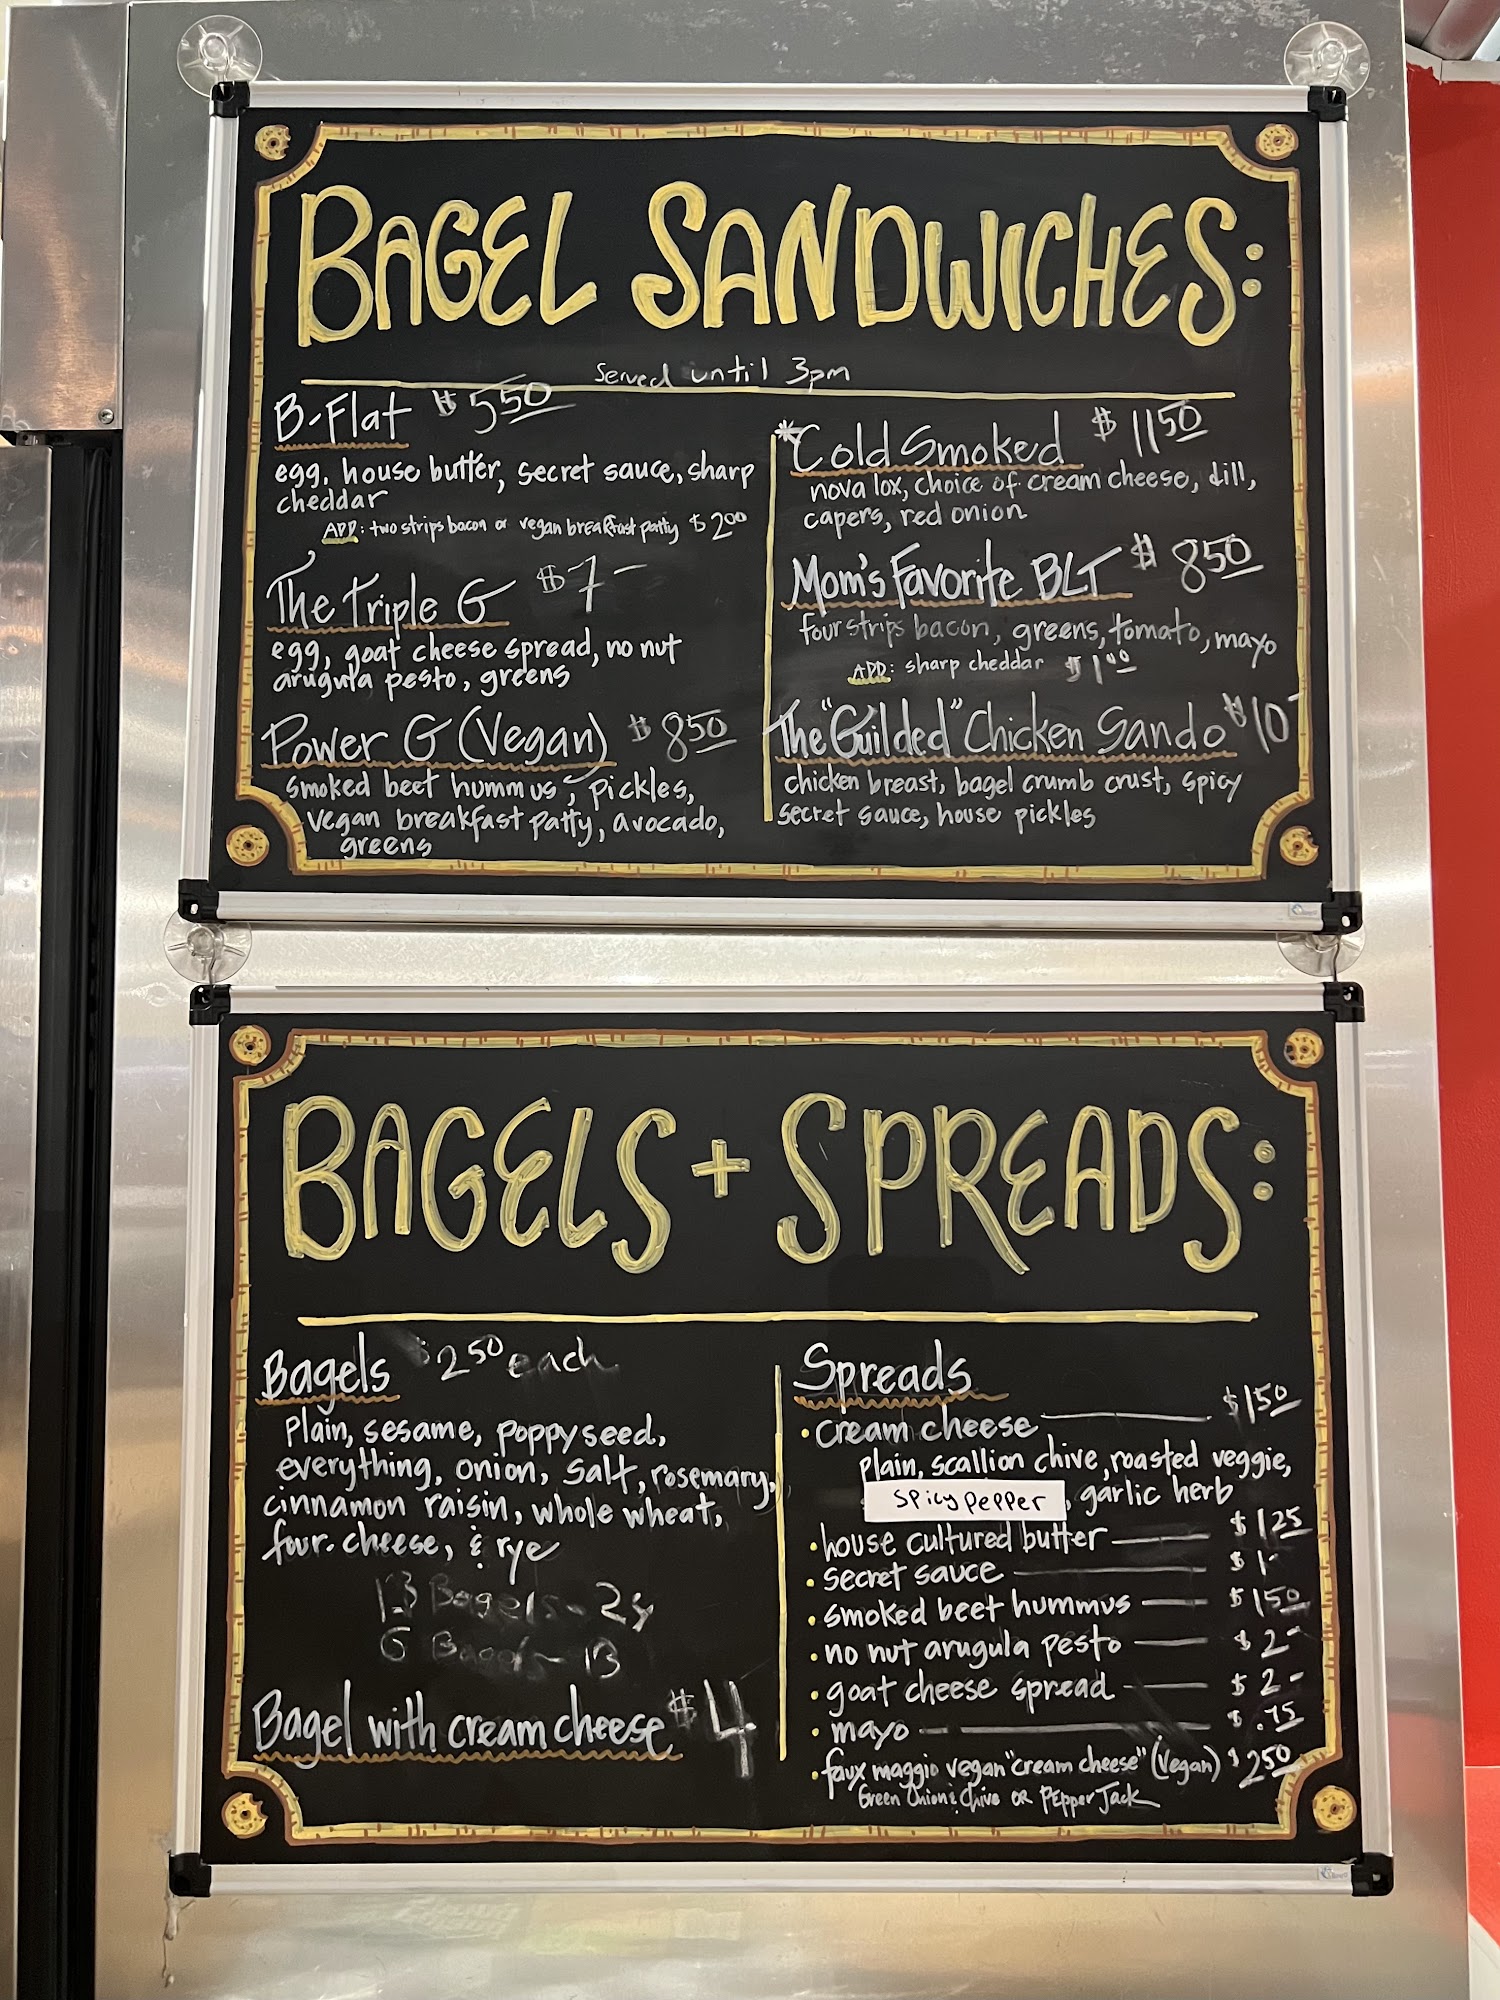 BAGEL SANDWICHES:
Served until 3pm
B-Flat $5.50
egg, house butter, secret sauce, sharp
cheddar
ADD: two strips bacon or vegan breakfast patty $2.00
The Triple G $7-
egg, goat cheese spread, no nut
arugula pesto, greens
Power G (Vegan) $8.50
smoked beet hummus, pickles,
vegan breakfast patty, avocado,
greens
*Cold Smoked $11.50
nova lox, choice of cream cheese, dill,
capers, red onion
Mom's Favorite BLT $8.50
four strips bacon, greens, tomato, mayo
ADD: sharp cheddar $1.00
The "Guilded" Chicken Sando $10-
chicken breast, bagel crumb crust, spicy
secret sauce, house pickles
BAGELS + SPREADS:
Bagels $2.50 each
Plain, sesame, poppyseed,
everything, onion, salt, rosemary,
cinnamon raisin, whole wheat,
four.cheese, & rye
13 Bagels -
6 Bagels - 13
Bagel with cream cheese $4
Spreads
• cream cheese $1.50
plain, scallion chive, roasted veggie,
spicy pepper, garlic herb
• house cultured butter $1.25
• secret sauce $1-
• smoked beet hummus $1.50
• no nut arugula pesto $2-
• goat cheese spread $2-
• mayo $.75
• faux maggio vegan "cream cheese" (Vegan) $2.50
Green Onion & Chive OR Pepper Jack